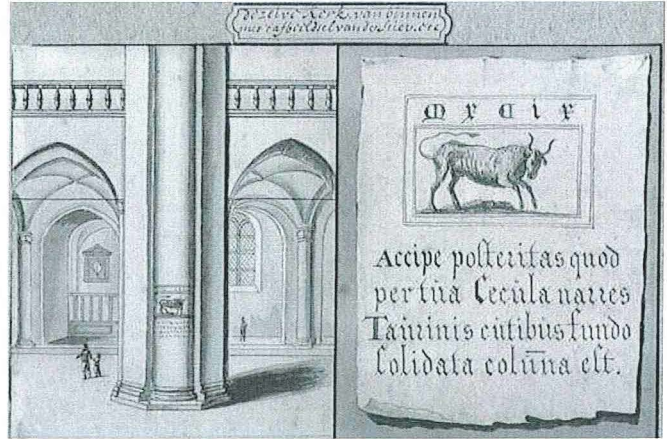 dezelve Kerk, van binnen
met afbeeldsel van de Stier, etc
M X C i X
Accipe poſteritas quod
per tŭa Cecŭla narres
Taŭrinis cŭtibŭs fundo
ſolidata colūna eſt.